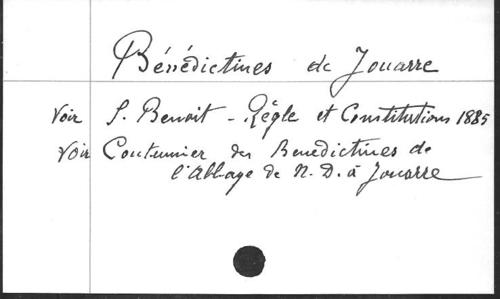 Bénédictines de Jouarre
Voir S. Benoit - Règle et Constitutions 1885
Voir Coutumier des Benedictines de
l'Abbaye de N. D. à Jouarre